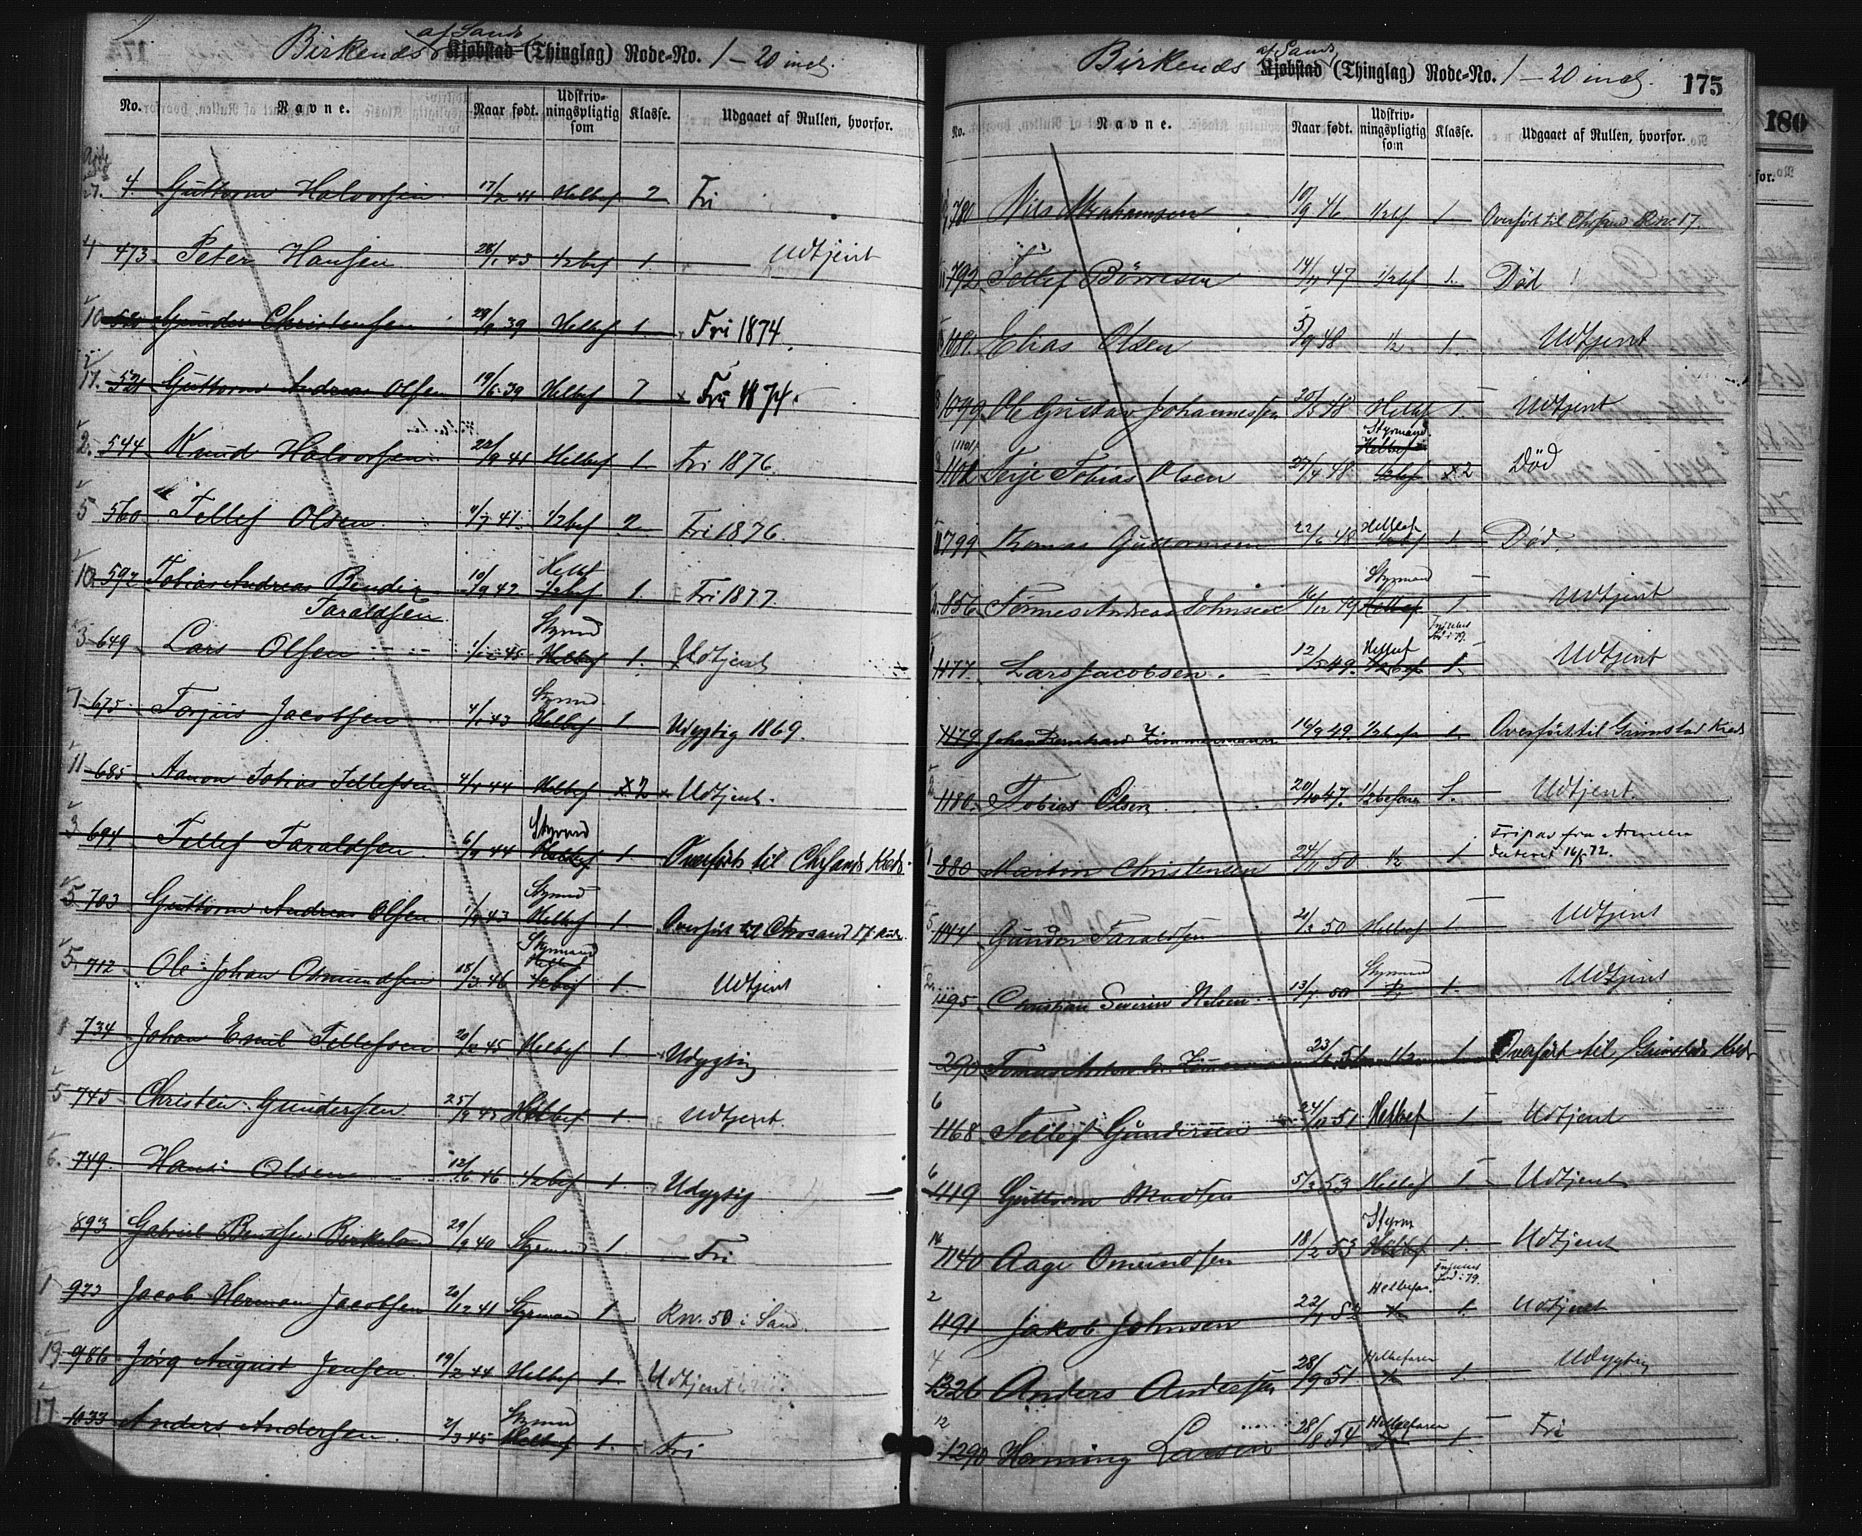 Birkenes af Sands Kjøbstad (Thinglag) Rode-No. 1 - 20 incl.
No. Navne. Naar født. Udskrivningspligtig som Klasse. Udgaaet af Rullen, hvorfor.
4. Guttorm Halvorsen 17/2 41 Helbef 2 Fri
4 473 Peter Hansen 28/1 43 1/2bef 1. Udtjent
10 520 Gunder Christensen 39 Helbef 1. Fri 1874.
17. 521 Guttorm Andreas Olsen 19/6 39 Helbef Fri 1874.
2. 544 Knud Halvorsen 41 Helbef 1 Fri 1876.
5 560 Tellef Olsen 41 1/2bef 2 Fri 1876.
10 592 Tobias Andreas Bendix Taraldsen 10/9 42 Helbf 1/2bef 1. Fri 1877.
3 649 Lars Olsen 45 Styrmd Helbef 1. Udtjent
1 675 Torjus Jacobsen 43 Styrmd Helbef 1 Udygtig 1869.
11 685 Aanon Tobias Tellefsen 44 Helbef x 2 Udtjent.
3 694 Tellef Taraldsen 6/9 44 Styrmd Helbef 1 Overført til Chrsands Kreds.
5. 703 Guttorm Andreas Olsen 1/9 43 Styrmd Helbef 1. Overført til Chrsand 17 Kreds.
5. 712 Ole Johan Osmundsen 18/3 46 Styrmand Helbef 1/2bef 1. Udtjent
1 734 Johan Emil Tellefsen 45 Helbef 1 Udygtig
5 745 Christen Gundersen 25/9 45 Helbef 1. Udtjent.
6. 749. Hans Olsen 12/6 46 1/2bef 1 Udygtig
893 Gabriel Bentsen Birkeland 29/9 40 Styrmand 1 Fri
1 922 Jacob Herman Jacobsen 20/12 41 Styrmand 1 Rn. 50 i Sand.
19 986 Jörg August Jensen 19/2 44 Helbef 1 Udtjent
17 1033 Anders Andersen. 2/3 45 Styrmd Helbef 1. Fri
Birkenes af Sands Kjøbstad (Thinglag) Rode-No. 1 - 20 incl. 175
No. Navne. Naar født. Udskrivningspligtig som Klasse. Udgaaet af Rullen, hvorfor.
780 Nils Abrahamson 10/9 46 1/2bf 1 Overfört til Chrsand Rn. 17.
792 Tellef Börresen 14/11 47 1/2bef 1. Död
1081. Elias Olsen 5/9 48 1/2 1. Udtjent
1099 Ole Gustav Johannessen 48 Helbf 1 Udtjent
1101 Terje Tobias Olsen 27/4 48 Styrmand Helbef 1/2bef x 2 Död
799 Tomas Guttormsen 22/6 48 Helbef 1/2bef 1. Död.
856 Tönnes Andreas Johnsen 16/12 49 Styrmand Helbef 1 Udtjent
1177. Lars Jacobsen. 12/5 49. Helbef 1/2bef 1. Udtjent
1179 Johan Bernhard Zimmermann 16/9 49. 1/2befa 1. Overfört til Grimstad Kreds
1180. Tobias Olsen 20/10 47. 1/2befaren 1. Udtjent.
880 Martin Christensen 24/11 50 1/2 1 Fripas fra Armeen dateret 16/5 72.
5 1144 Gunder Taraldsen 21/2 50 Helbef 1 Udtjent
1195 Christian Severin Nilsen 13/7 50 Styrmand 1/2 1. Udtjent
290 51 1/2 1. Overført til Grimstads Kreds
6 1168 Tellef Gundersen 24/11 51 Helbef 1 Udtjent
6 1119 Guttorm Madsen 5/2 53 Helbef 1 Udtjent
16 1140 Aage Omundsen 18/2 53 Styrm Helbf 1. Udtjent
2 1191 Jakob Johnsen 22/1 52 Helbefar. 1/2 1. Udtjent
4 1326 Anders Andersen 28/9 51 Helbefaren 1/2 1 Udygtig
12 1290 Henning Larsen 28/8 54 Helbefaren 1/2 1. Fri
180